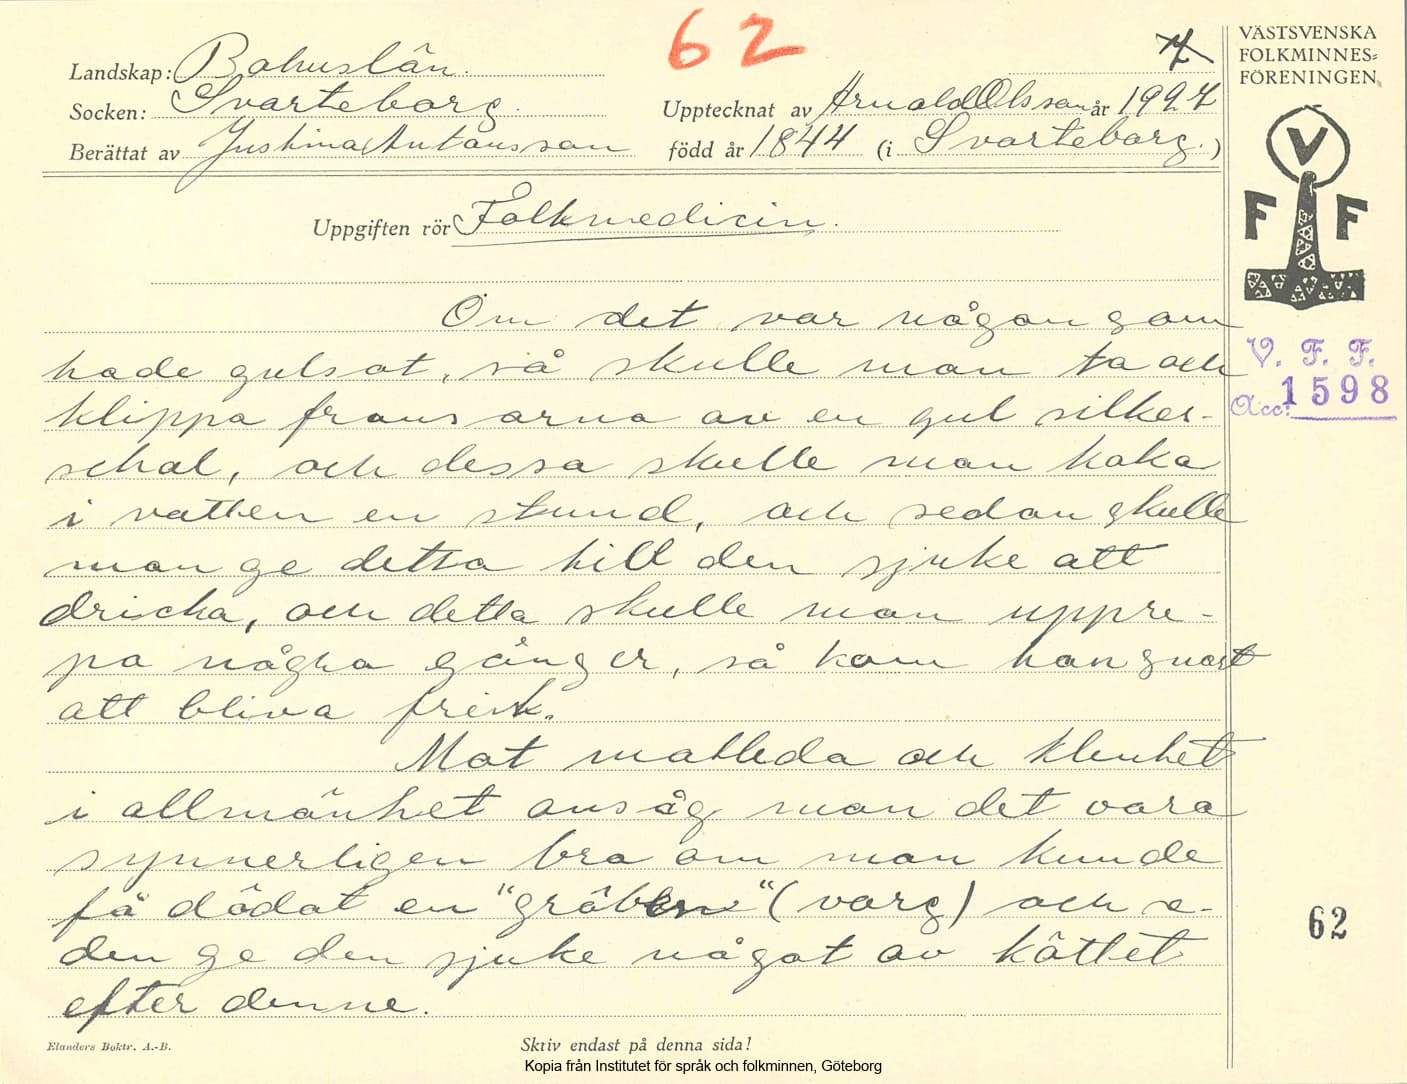 62
VÄSTSVENSKA
FOLKMINNES=
FÖRENINGEN
Landskap: Bohuslän.
Socken: Svarteborg.
Upptecknat av Arnold Olsson år 1927
Berättat av Justina Antonsson född år 1844 (i Svarteborg.)
V
F F
Uppgiften rör Folkmedicin.
Om det var någon som
hade gulsot, så skulle man ta och
klippa fransarna av en gul silkes-
schal, och dessa skulle man koka
i vatten en stund, och sedan skulle
man ge detta till den sjuke att
dricka, och detta skulle man uppre-
pa några gånger, så kom han snart
att bliva frisk.
Mot matleda och klenhet
i allmänhet ansåg man det vara
synnerligen bra om man kunde
få dödat en "gråben" (varg) och se-
den ge den sjuke något av köttet
efter denne.
V. F. F.
Acc: 1598
62
Elanders Boktr. A.-B.
Skriv endast på denna sida!
Kopia från Institutet för språk och folkminnen, Göteborg